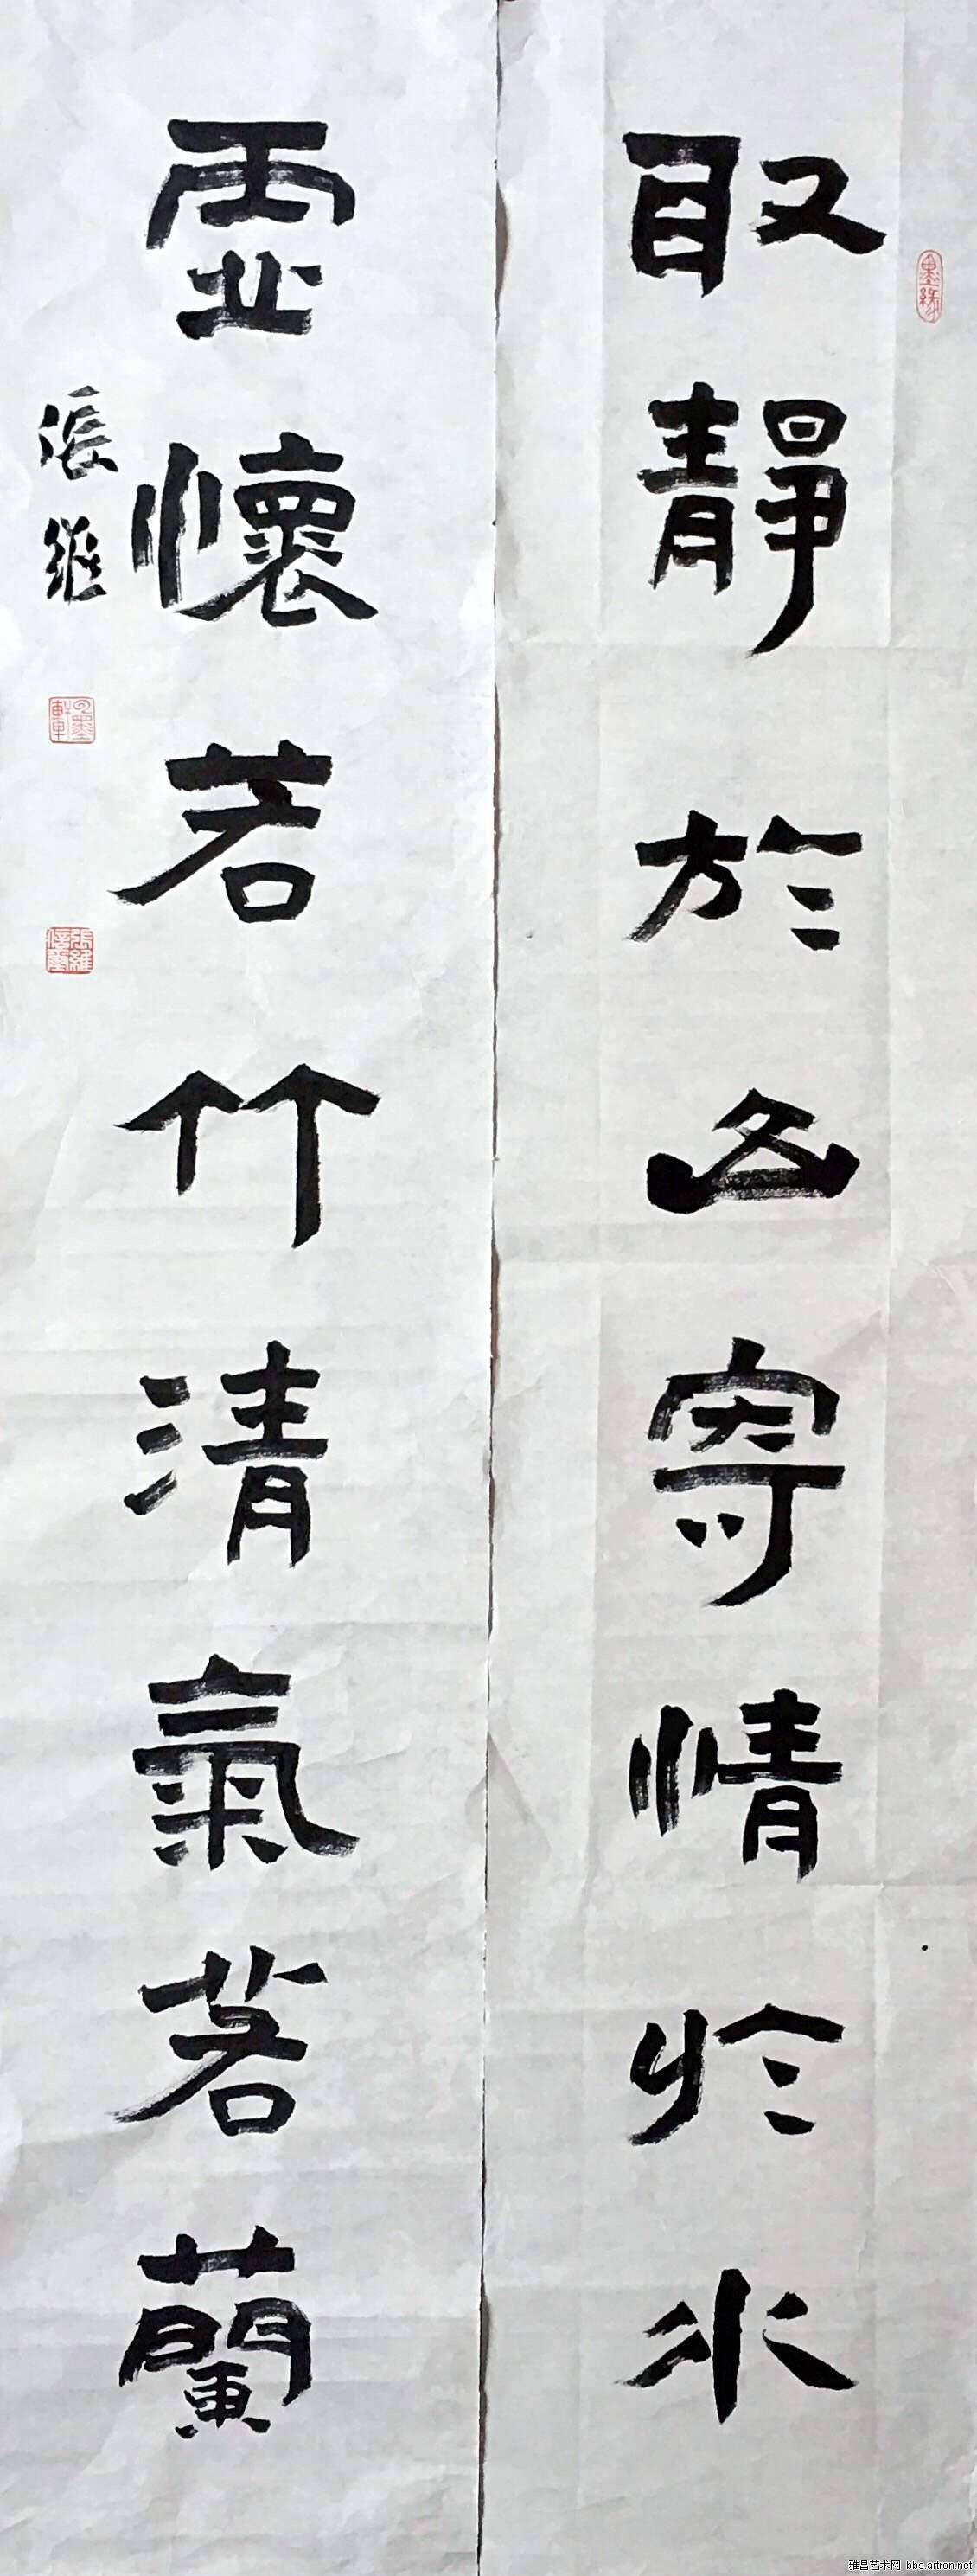 取靜於山寄情於水
虛懷若竹清氣若蘭
張維
墨緣
張維信璽
雅昌艺术网 bbs.artron.net